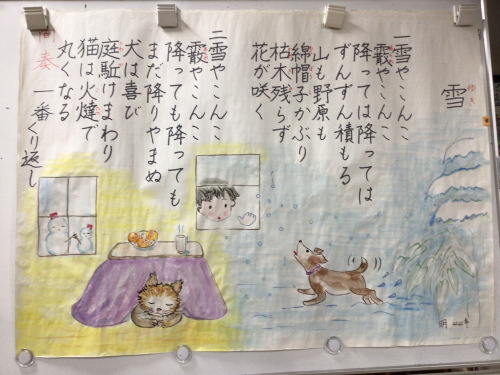 雪
ゆき
一雪やこんこ
霰やこんこ
降っては降っては
ずんずん積もる
山も野原も
綿帽子かぶり
枯木残らず
花が咲く
二雪やこんこ
霰やこんこ
降っても降っても
まだ降りやまぬ
犬は喜び
庭駈けまわり
猫は火燵で
丸くなる
間奏 一番くり返し